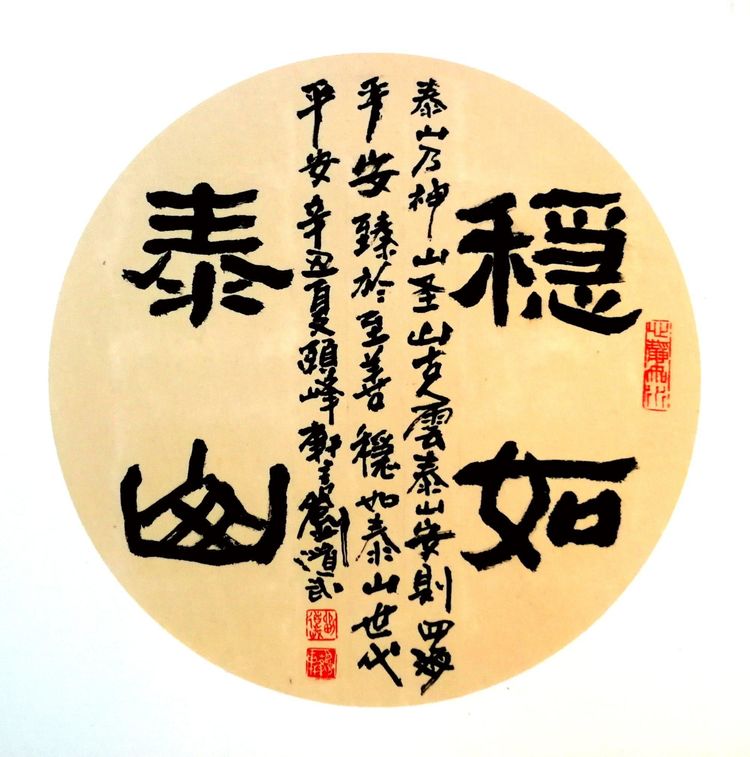 穩如
泰山乃神山圣山古人雲泰山安則四海
平安臻於至善穩如泰山世代
平安辛丑夏頤峰軒
泰山